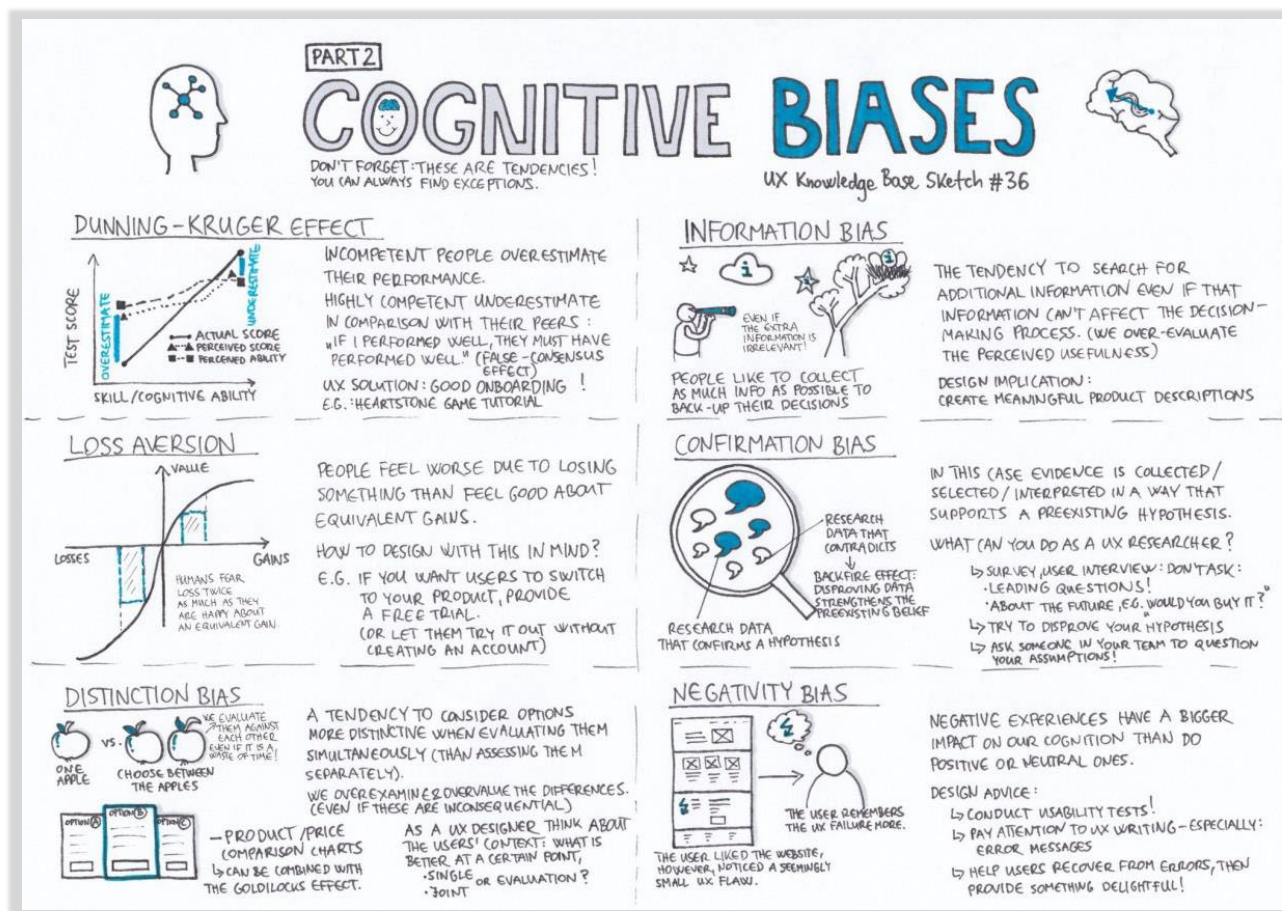 PART 2
COGNITIVE BIASES
DON'T FORGET: THESE ARE TENDENCIES!
YOU CAN ALWAYS FIND EXCEPTIONS.
UX Knowledge Base Sketch #36
DUNNING-KRUGER EFFECT
TEST SCORE
OVERESTIMATE
UNDERESTIMATE
ACTUAL SCORE
PERCEIVED SCORE
PERCEIVED ABILITY
SKILL/COGNITIVE ABILITY
INCOMPETENT PEOPLE OVERESTIMATE
THEIR PERFORMANCE.
HIGHLY COMPETENT UNDERESTIMATE
IN COMPARISON WITH THEIR PEERS:
"IF I PERFORMED WELL, THEY MUST HAVE
PERFORMED WELL." (FALSE-CONSENSUS
EFFECT)
UX SOLUTION: GOOD ONBOARDING!
E.G.: HEARTSTONE GAME TUTORIAL
INFORMATION BIAS
i
i
EVEN IF
THE EXTRA
INFORMATION IS
IRRELEVANT!
PEOPLE LIKE TO COLLECT
AS MUCH INFO AS POSSIBLE TO
BACK-UP THEIR DECISIONS
THE TENDENCY TO SEARCH FOR
ADDITIONAL INFORMATION EVEN IF THAT
INFORMATION CAN'T AFFECT THE DECISION-
MAKING PROCESS. (WE OVER-EVALUATE
THE PERCEIVED USEFULNESS)
DESIGN IMPLICATION:
CREATE MEANINGFUL PRODUCT DESCRIPTIONS
LOSS AVERSION
VALUE
LOSSES
GAINS
HUMANS FEAR
LOSS TWICE
AS MUCH AS THEY
ARE HAPPY ABOUT
AN EQUIVALENT GAIN.
PEOPLE FEEL WORSE DUE TO LOSING
SOMETHING THAN FEEL GOOD ABOUT
EQUIVALENT GAINS.
HOW TO DESIGN WITH THIS IN MIND?
E.G. IF YOU WANT USERS TO SWITCH
TO YOUR PRODUCT, PROVIDE
A FREE TRIAL.
(OR LET THEM TRY IT OUT WITHOUT
CREATING AN ACCOUNT)
CONFIRMATION BIAS
RESEARCH
DATA THAT
CONTRADICTS
BACKFIRE EFFECT:
DISPROVING DATA
STRENGTHENS THE
PREEXISTING BELIEF
RESEARCH DATA
THAT CONFIRMS A HYPOTHESIS
IN THIS CASE EVIDENCE IS COLLECTED/
SELECTED/INTERPRETED IN A WAY THAT
SUPPORTS A PREEXISTING HYPOTHESIS.
WHAT CAN YOU DO AS A UX RESEARCHER?
↳ SURVEY, USER INTERVIEW: DON'T ASK:
· LEADING QUESTIONS!
· ABOUT THE FUTURE, E.G. "WOULD YOU BUY IT?"
↳ TRY TO DISPROVE YOUR HYPOTHESIS
↳ ASK SOMEONE IN YOUR TEAM TO QUESTION
YOUR ASSUMPTIONS!
DISTINCTION BIAS
ONE
APPLE
VS.
CHOOSE BETWEEN
THE APPLES
WE EVALUATE
THEM AGAINST
EACH OTHER
EVEN IF IT IS A
WASTE OF TIME!
OPTION A
OPTION B
OPTION C
– PRODUCT/PRICE
COMPARISON CHARTS
↳ CAN BE COMBINED WITH
THE GOLDILOCKS EFFECT.
A TENDENCY TO CONSIDER OPTIONS
MORE DISTINCTIVE WHEN EVALUATING THEM
SIMULTANEOUSLY (THAN ASSESSING THEM
SEPARATELY).
WE OVEREXAMINE & OVERVALUE THE DIFFERENCES.
(EVEN IF THESE ARE INCONSEQUENTIAL)
AS A UX DESIGNER THINK ABOUT
THE USERS' CONTEXT: WHAT IS
BETTER AT A CERTAIN POINT,
· SINGLE
OR EVALUATION?
· JOINT
NEGATIVITY BIAS
THE USER REMEMBERS
THE UX FAILURE MORE.
THE USER LIKED THE WEBSITE,
HOWEVER, NOTICED A SEEMINGLY
SMALL UX FLAW.
NEGATIVE EXPERIENCES HAVE A BIGGER
IMPACT ON OUR COGNITION THAN DO
POSITIVE OR NEUTRAL ONES.
DESIGN ADVICE:
↳ CONDUCT USABILITY TESTS!
↳ PAY ATTENTION TO UX WRITING – ESPECIALLY:
ERROR MESSAGES
↳ HELP USERS RECOVER FROM ERRORS, THEN
PROVIDE SOMETHING DELIGHTFUL!